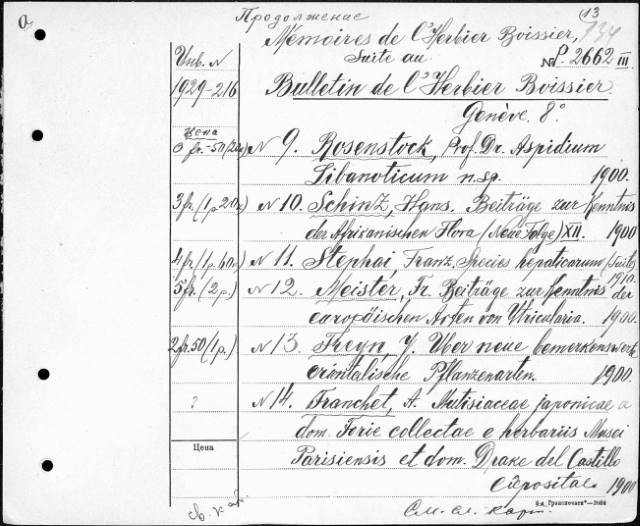 Продолжение
(13
134
Mémoires de l'Herbier Boissier,
Инв. N
Suite au
N P. 2662 III.
1929-216
Bulletin de l'Herbier Boissier.
Genève. 8°
Цена
N 9. Rosenstock, Prof. Dr. Aspidium
Libanoticum n. sp. 1900.
3 fr. (1 p. 20 к) N 10. Schinz, Hans. Beiträge zur Kenntnis
der Afrikanischen Flora (Neue Folge) XII. 1900
4 fr (1 p. 60 к) N 11. Stephai, Franz. Species hepaticarum (Suite)
1910.
5 fr. (2 p.) N 12. Meister, Fr. Beiträge zur Kenntnis der
europäischen Arten von Utricularia. 1900.
2 fr. 50 (1 p.) N 13. Freyn, J. Über neue bemerkenswerte
orientalische Pflanzenarten. 1900.
? N 14. Franchet, A. Mutisiaceae japonicae a
dom. Forie collectae e herbariis Musei
Цена
Parisiensis et dom. Drake del Castillo
expositae 1900
св. кар.
См. сл. карт.